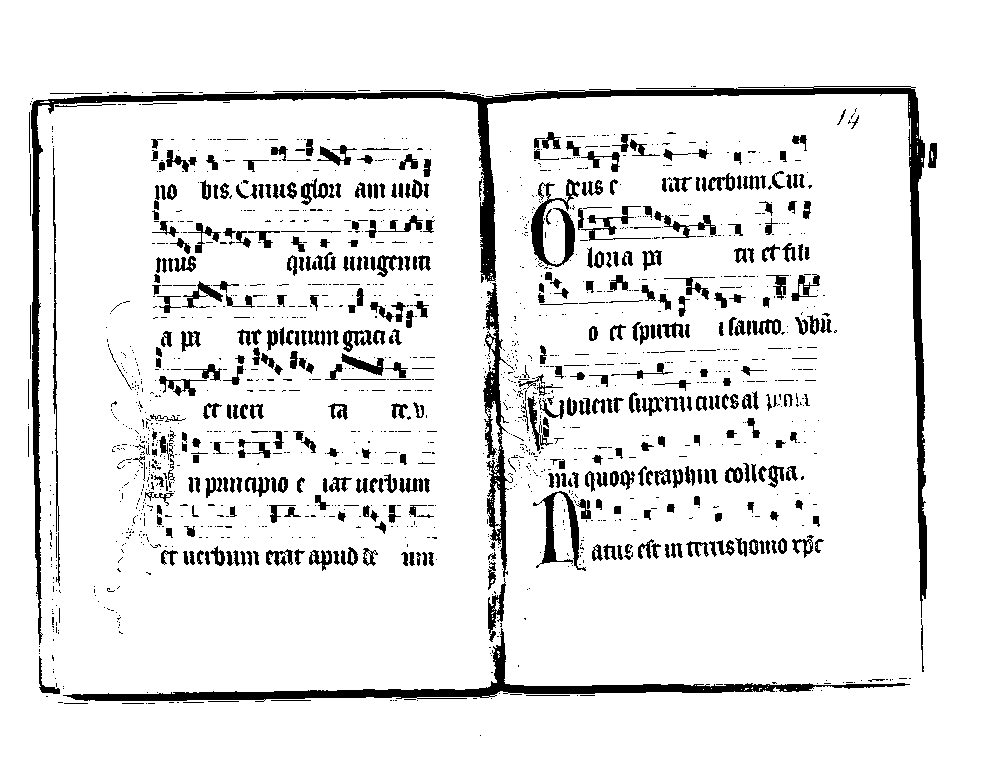 no bis. Cuius glori am uidi
mus quasi unigeniti
a pa tre plenum gracia
et ueri ta te. v.
In principio e rat uerbum
et uerbum erat apud de um
14
et deus e rat uerbum. Cui.
Gloria pa tri et fili
o et spiritu i sancto. vbū.
superni ciues al
ma quoq; seraphin collegia.
Natus est in terris homo xp̄c